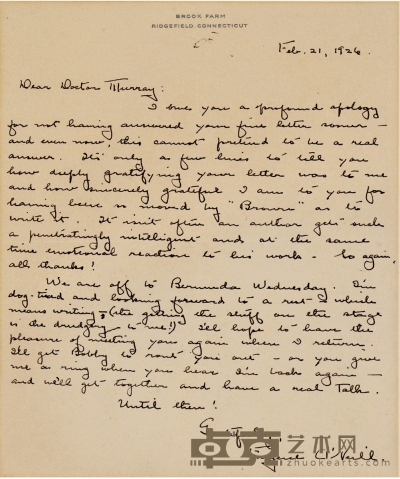 BROOK FARM
RIDGEFIELD, CONNECTICUT
Feb. 21, 1926.
Dear Doctor Murray:
I owe you a profound apology
for not having answered your fine letter sooner -
and even now, this cannot pretend to be a real
answer. It's only a few lines to tell you
how deeply gratifying your letter was to me
and how sincerely grateful I am to you for
having been so moved by "Brown" as to
write it. It isn't often an author gets such
a penetratingly intelligent and at the same
time emotional reaction to his work. So again,
all thanks!
We are off to Bermuda Wednesday. I'm
dog-tired and looking forward to a rest - which
means writing (the getting the stuff on the stage
is the drudgery to me!) I'll hope to have the
pleasure of meeting you again when I return.
I'll get Bobby to rout you out - or you give
me a ring when you hear I'm back again -
and we'll get together and have a real talk.
Until then!
Eugene O'Neill.
卓克艺术网
zhuokearts.com